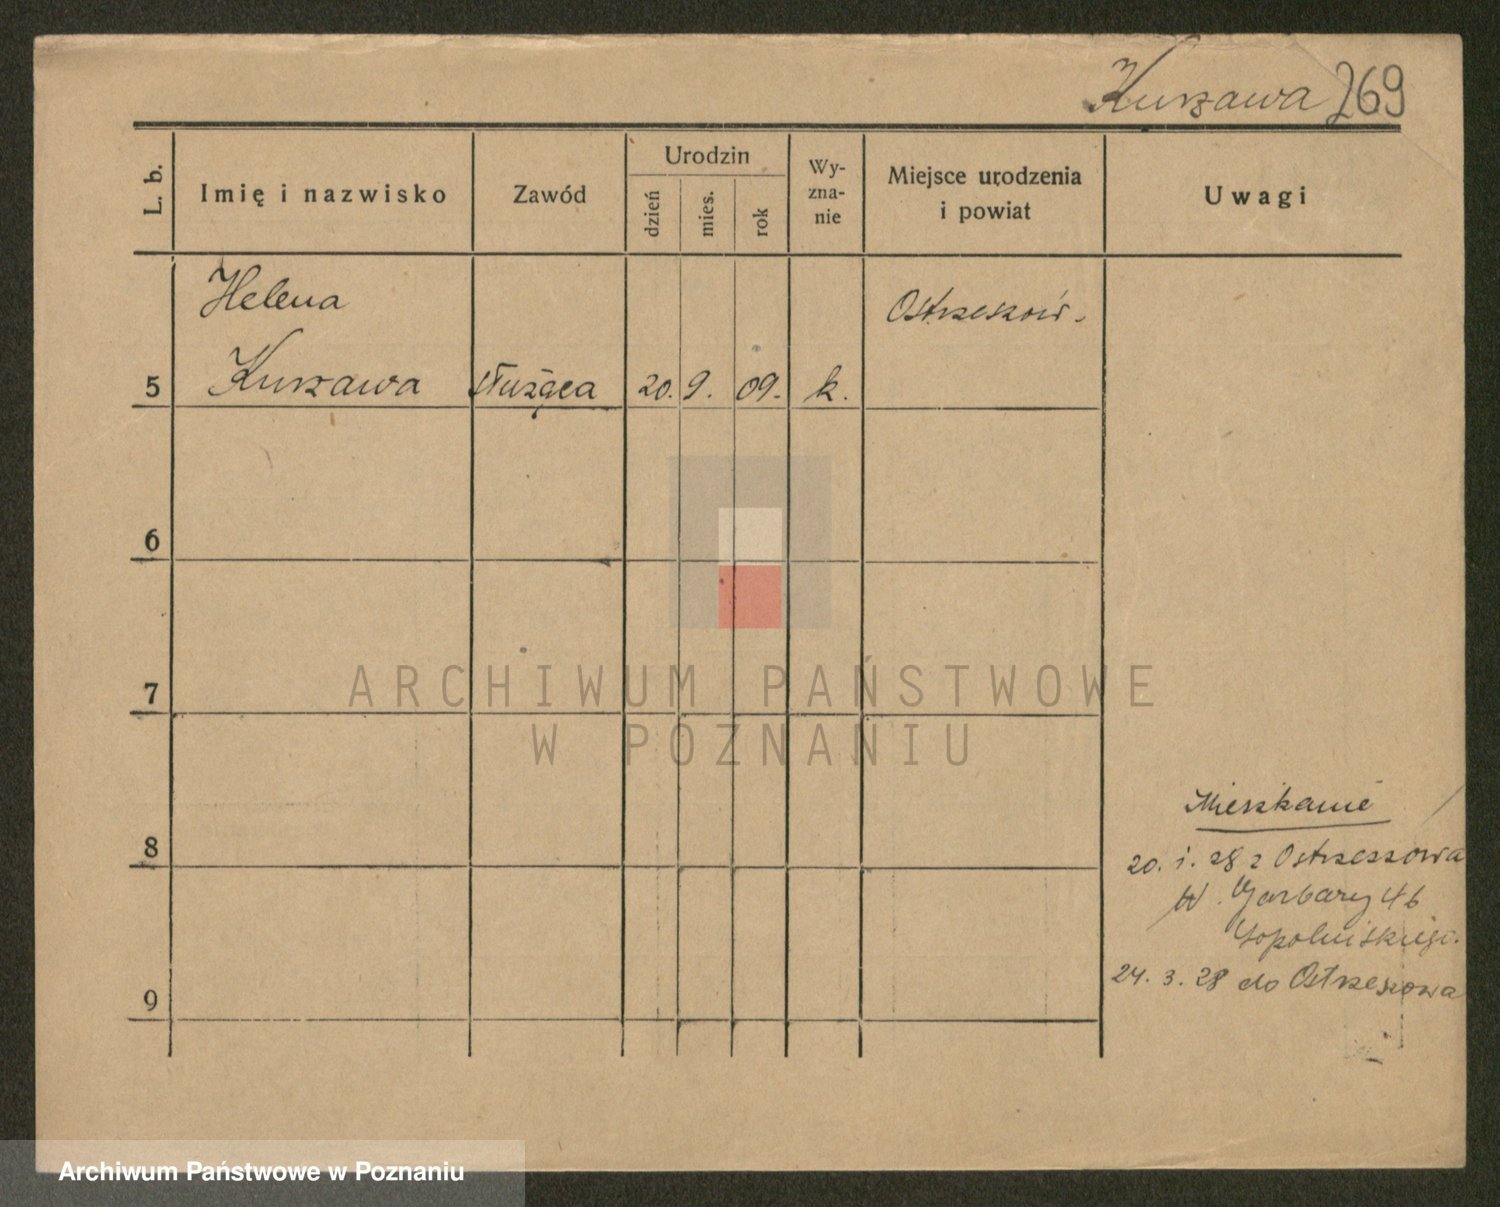 Kurzawa 269
L. b.
Imię i nazwisko
Zawód
Urodzin
dzień
mies.
rok
Wy-
zna-
nie
Miejsce urodzenia
i powiat
Uwagi
Helena
Ostrzeszów.
5 Kurzawa służąca 20. 9. 09. k.
6
7
ARCHIWUM PAŃSTWOWE
W POZNANIU
Mieszkanie
8
20. 1. 28 z Ostrzeszowa
W. Garbary 46
24. 3. 28 do Ostrzeszowa
9
Archiwum Państwowe w Poznaniu